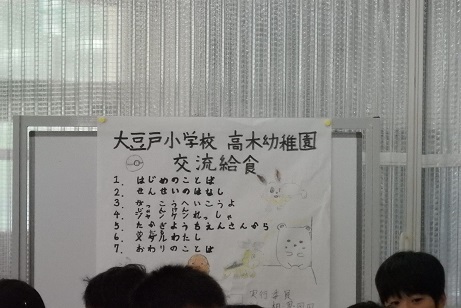 大豆戸小学校 高木幼稚園
交流給食
1. はじめのことば
2. せんせいのはなし
3. がっこうへいこうよ
4. ジャンケンれっしゃ
5. たかぎようちえんさんから
6. メダルわたし
7. おわりのことば
実行委員